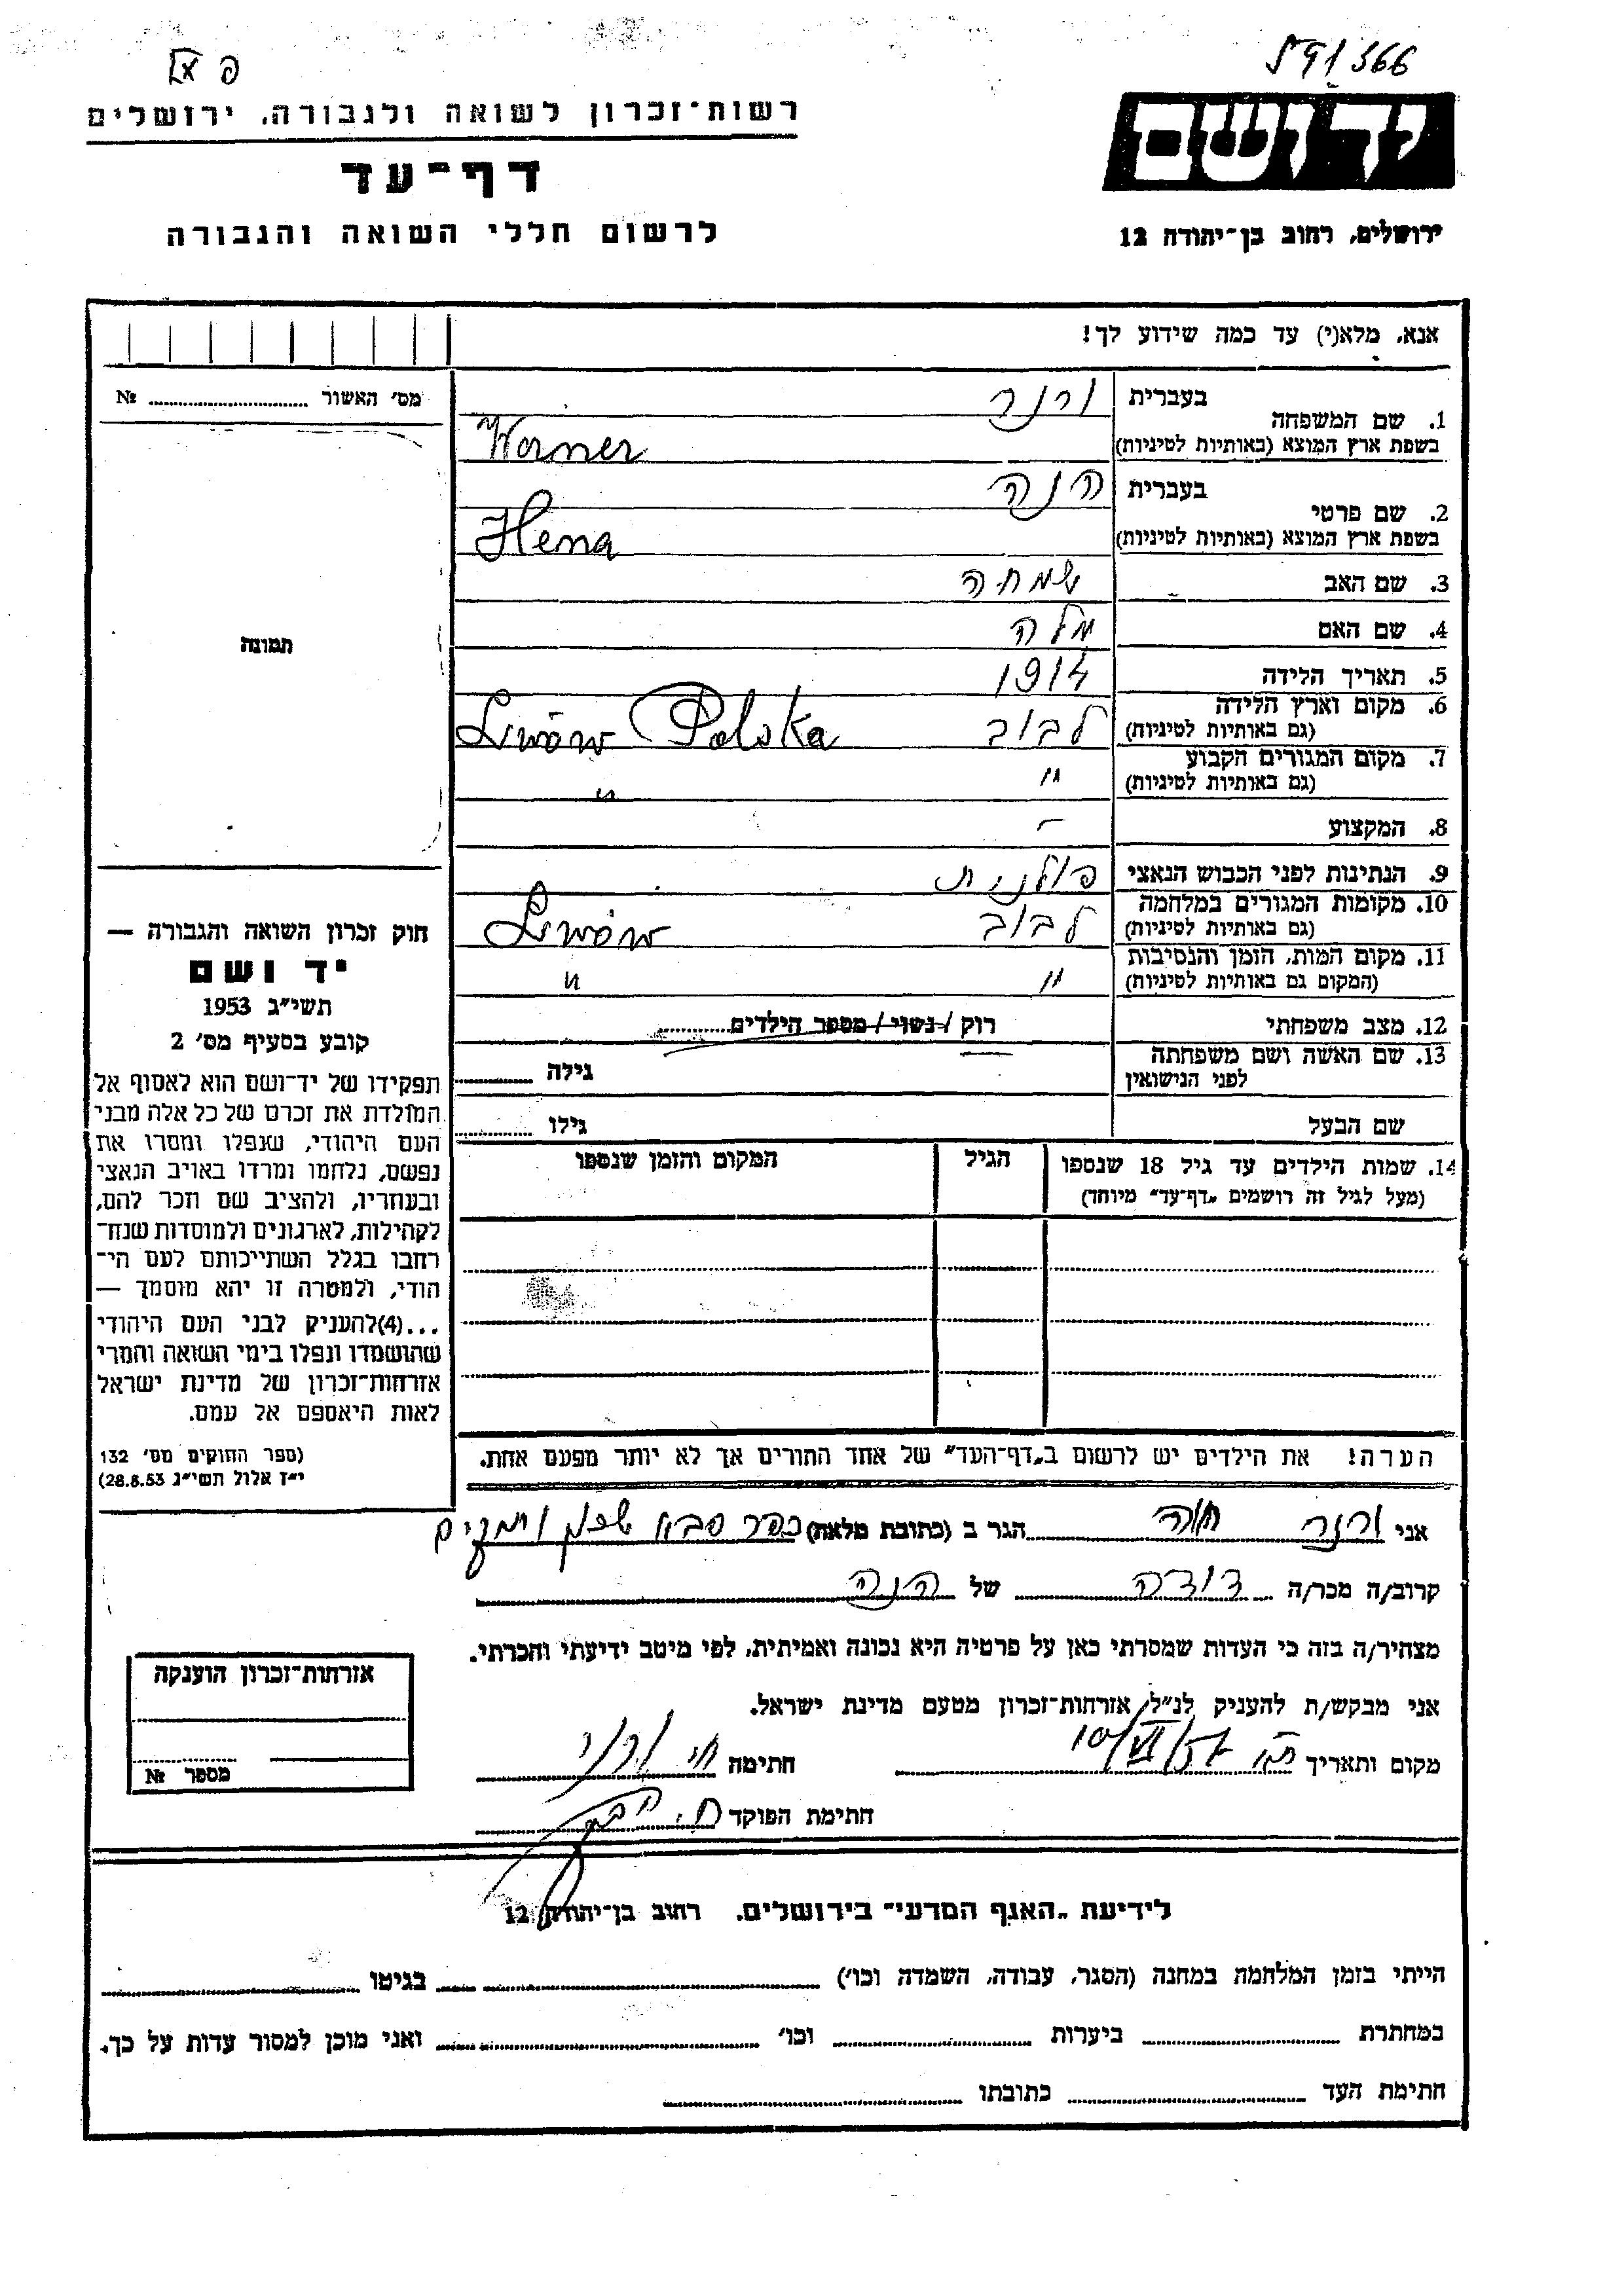 591366
פ
יד ושם
רשות־זכרון לשואה ולגבורה, ירושלים
דף־עד
לרשום חללי השואה והגבורה
ירושלים, רחוב בן־יהודה 12
אנא, מלא(י) עד כמה שידוע לך!
מס׳ האשור № ........
תמונה
1. שם המשפחה בעברית ורנר
בשפת ארץ המוצא (באותיות לטיניות) Werner
2. שם פרטי בעברית הנה
בשפת ארץ המוצא (באותיות לטיניות) Hena
3. שם האב שמחה
4. שם האם מלה
5. תאריך הלידה 1914
6. מקום וארץ הלידה (גם באותיות לטיניות) לבוב Lwów Polska
7. מקום המגורים הקבוע (גם באותיות לטיניות) " "
8. המקצוע –
9. הנתינות לפני הכבוש הנאצי פולנית
10. מקומות המגורים במלחמה (גם באותיות לטיניות) לבוב Lwów
11. מקום המות, הזמן והנסיבות (המקום גם באותיות לטיניות) " "
12. מצב משפחתי רוק / נשוי / מספר הילדים ........
13. שם האשה ושם משפחתה לפני הנישואין גילה ........
שם הבעל גילו ........
14. שמות הילדים עד גיל 18 שנספו (מעל לגיל זה רושמים „דף־עד״ מיוחד)
הגיל
המקום והזמן שנספו
הערה! את הילדים יש לרשום ב„דף־העד״ של אחד ההורים אך לא יותר מפעם אחת.
חוק זכרון השואה והגבורה —
יד ושם
תשי״ג 1953
קובע בסעיף מס׳ 2
תפקידו של יד־ושם הוא לאסוף אל
המולדת את זכרם של כל אלה מבני
העם היהודי, שנפלו ומסרו את
נפשם, נלחמו ומרדו באויב הנאצי
ובעוזריו, ולהציב שם וזכר להם,
לקהילות, לארגונים ולמוסדות שנח־
רבו בגלל השתייכותם לעם הי־
הודי, ולמטרה זו יהא מוסמך —
...(4) להעניק לבני העם היהודי
שהושמדו ונפלו בימי השואה והמרי
אזרחות־זכרון של מדינת ישראל
לאות היאספם אל עמם.
(ספר החוקים מס׳ 132
י״ז אלול תשי״ג 28.8.53)
אני ורנר חוה הגר ב (כתובת מלאה) כפר סבא שכון ותיקים
קרוב/ה מכר/ה דודה של הנה
מצהיר/ה בזה כי העדות שמסרתי כאן על פרטיה היא נכונה ואמיתית, לפי מיטב ידיעתי והכרתי.
אני מבקש/ת להעניק לנ״ל, אזרחות־זכרון מטעם מדינת ישראל.
מקום ותאריך 10/VI/57 חתימה
חתימת הפוקד
אזרחות־זכרון הוענקה
מספר №
לידיעת „האגף המדעי״ בירושלים. רחוב בן־יהודה 12
הייתי בזמן המלחמה במחנה (הסגר, עבודה, השמדה וכו׳) ........ בגיטו ........
במחתרת ........ ביערות ........ וכו׳ ........ ואני מוכן למסור עדות על כך.
חתימת העד ........ כתובתו ........